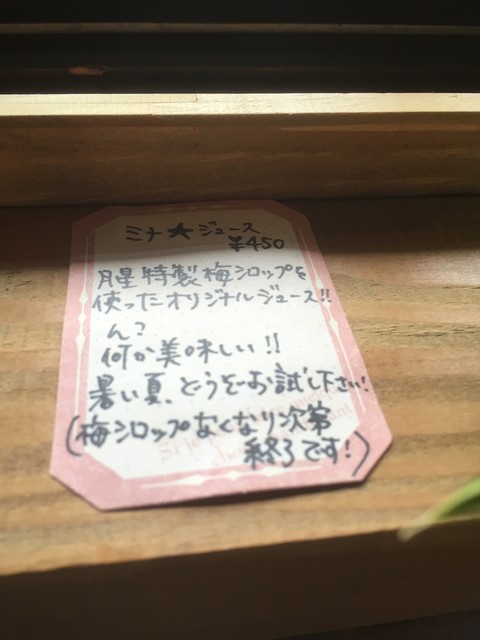 ミナ★ジュース
¥450
月星特製梅シロップを
使ったオリジナルジュース!!
ん?
何か美味しい!!
暑い夏、どうぞお試し下さい!
(梅シロップなくなり次第
終了です!)